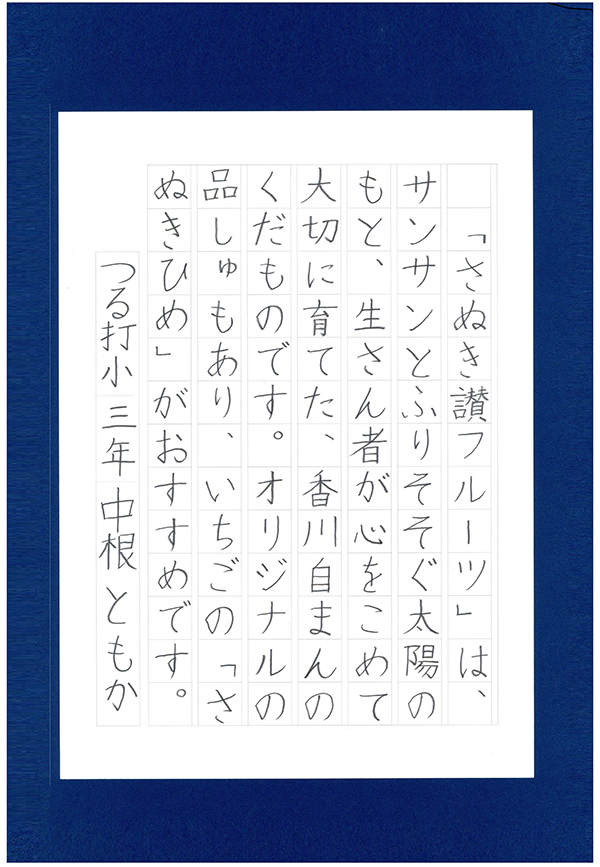 「さぬき讃フルーツ」は、
サンサンとふりそそぐ太陽の
もと、生さん者が心をこめて
大切に育てた、香川自まんの
くだものです。オリジナルの
品しゅもあり、いちごの「さ
ぬきひめ」がおすすめです。
つる打小三年中根ともか